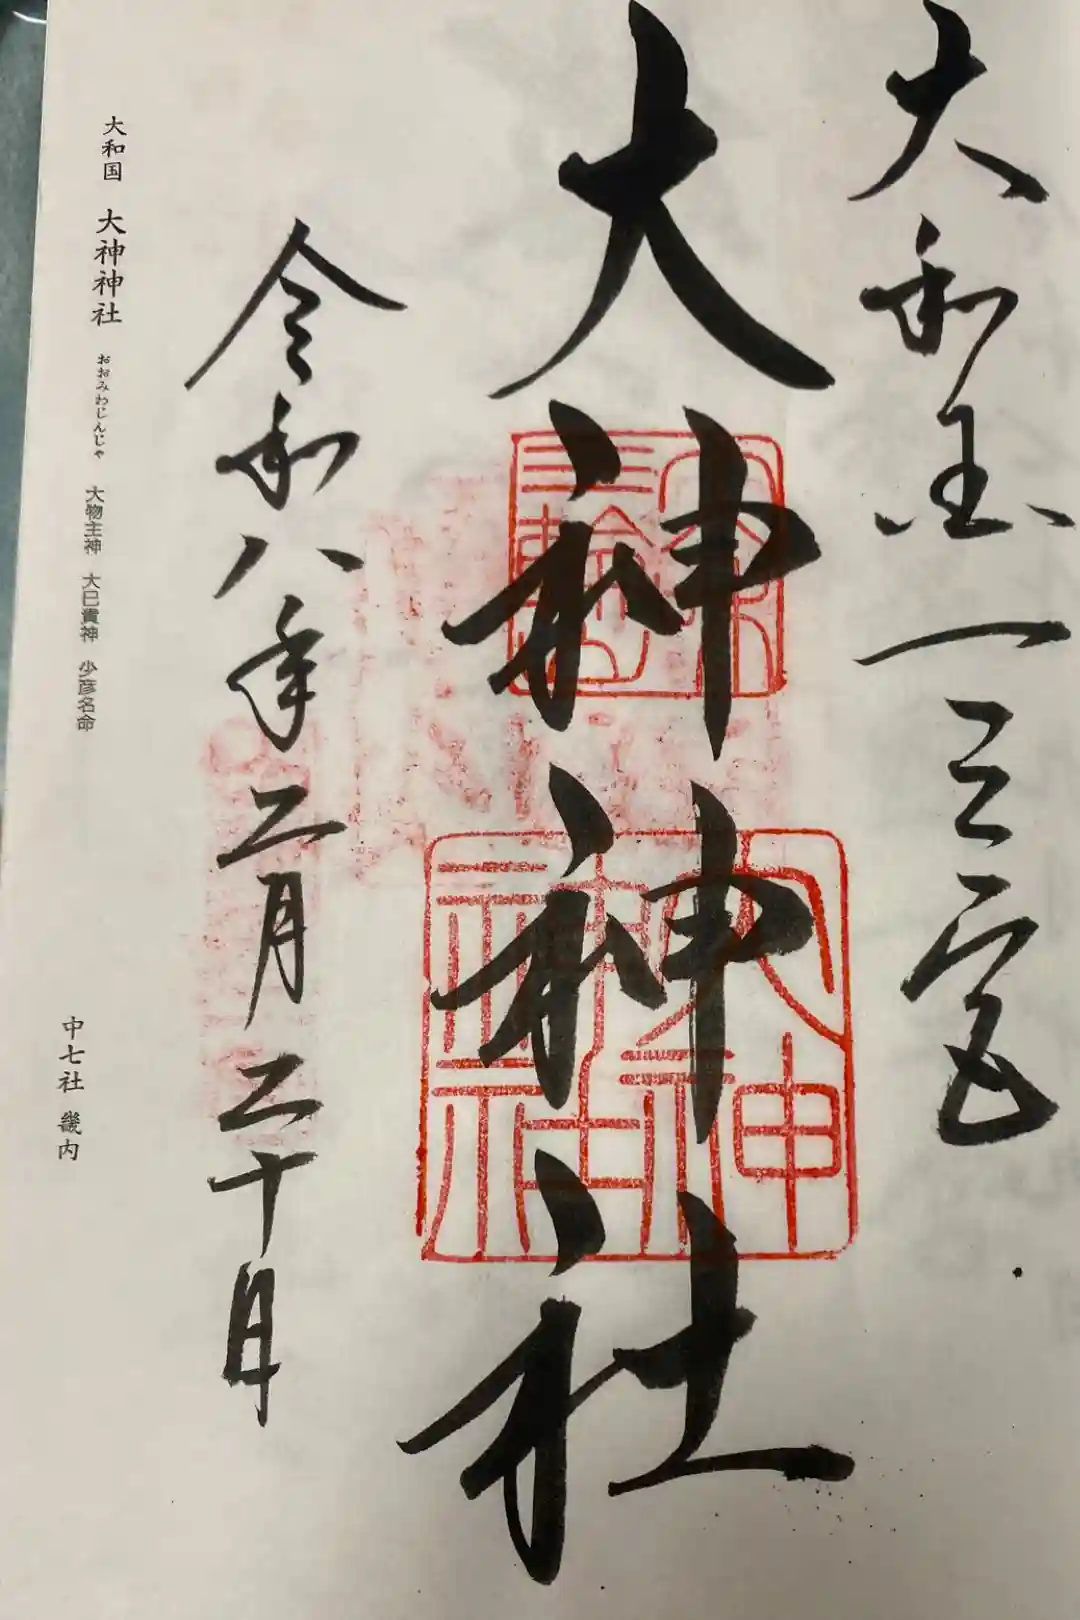 大和国一之宮
大神神社
大神神社
令和八年二月二十日
大和国 大神神社 おおみわじんじゃ 大物主神 大巳貴神 少彦名命
中七社 畿内